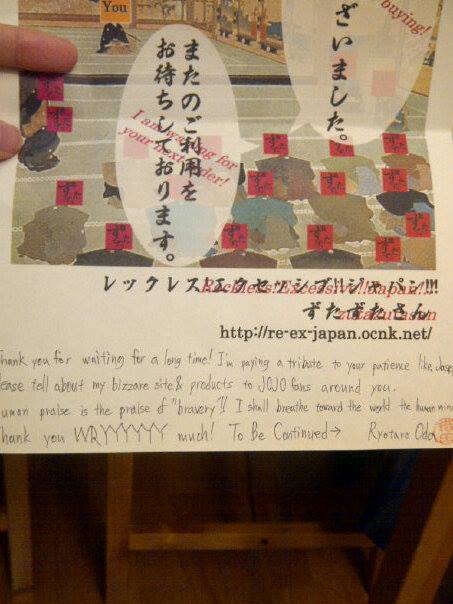 You
buying!
ざいました。
またのご利用を
お待ちしております。
I am waiting for
your next order!
ずた
ずた
ずた
ずた
ずた
ずた
ずた
ずた
ずた
ずた
ずた
ずた
レックレス!エクセッシブ!!ジャパン!!!
Reckless!Excessive!!Japan!!!
ずたずたさん
zutazutasan
http://re-ex-japan.ocnk.net/
hank you for waiting for a long time! I'm paying a tribute to your patience like
ease tell about my bizzare site & products to JOJO fans around you.
uman praise is the praise of "bravery"!! I shall breathe toward the world the human
hank you WRYYYYYY much! To Be Continued→ Ryotaro